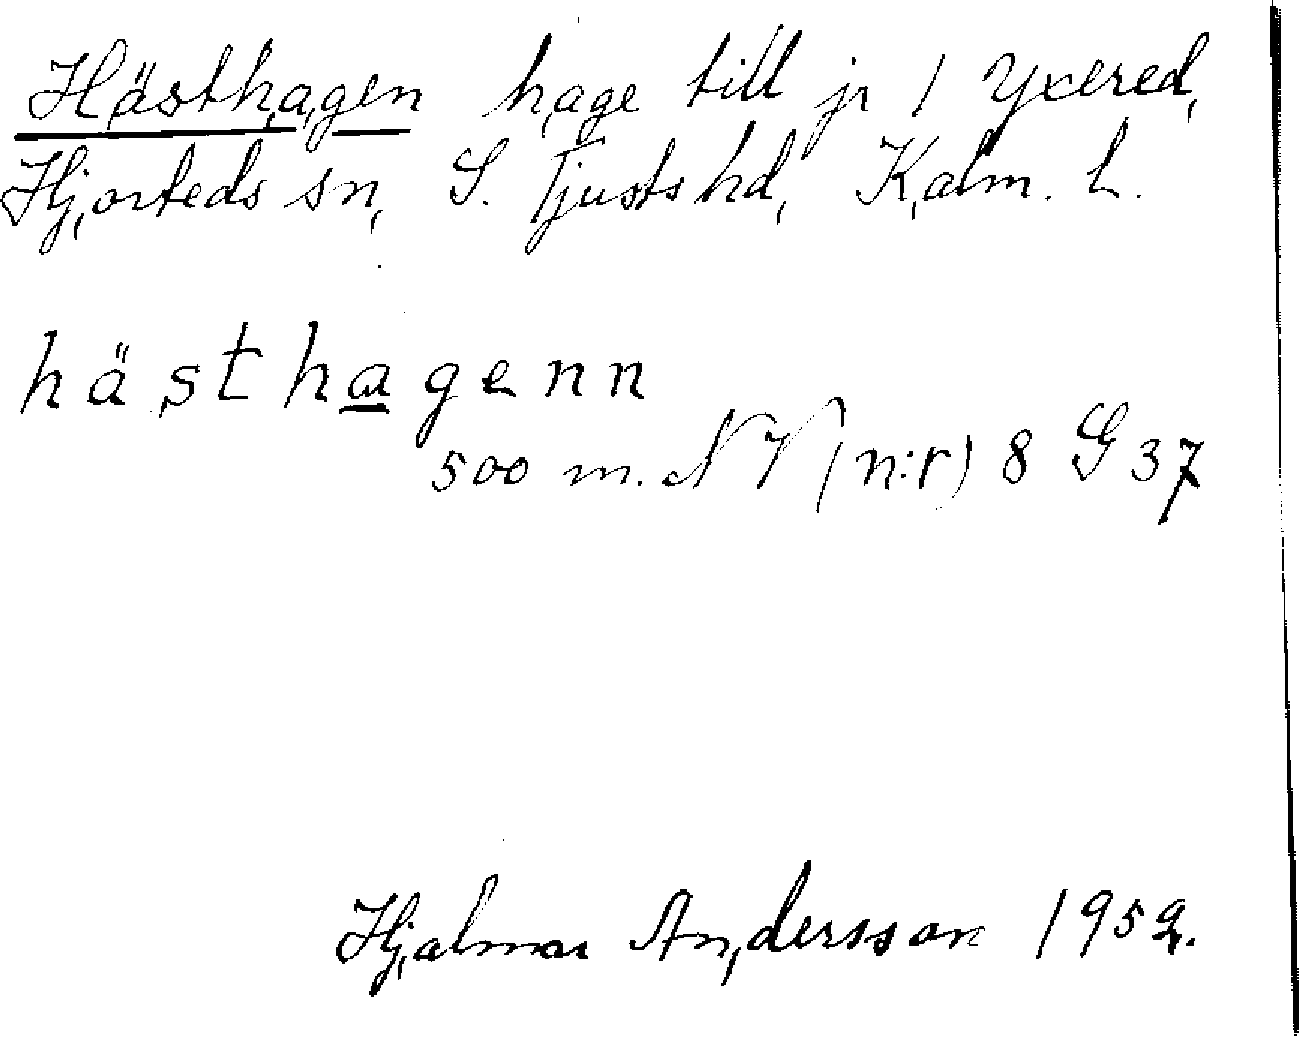 Hästhagen hage till jr 1 Yxered,
Hjorteds sn, S. Tjusts hd, Kalm. L.
hästhagenn
500 m. NV (n:r) 8 G 37
Hjalmar Andersson 1952.